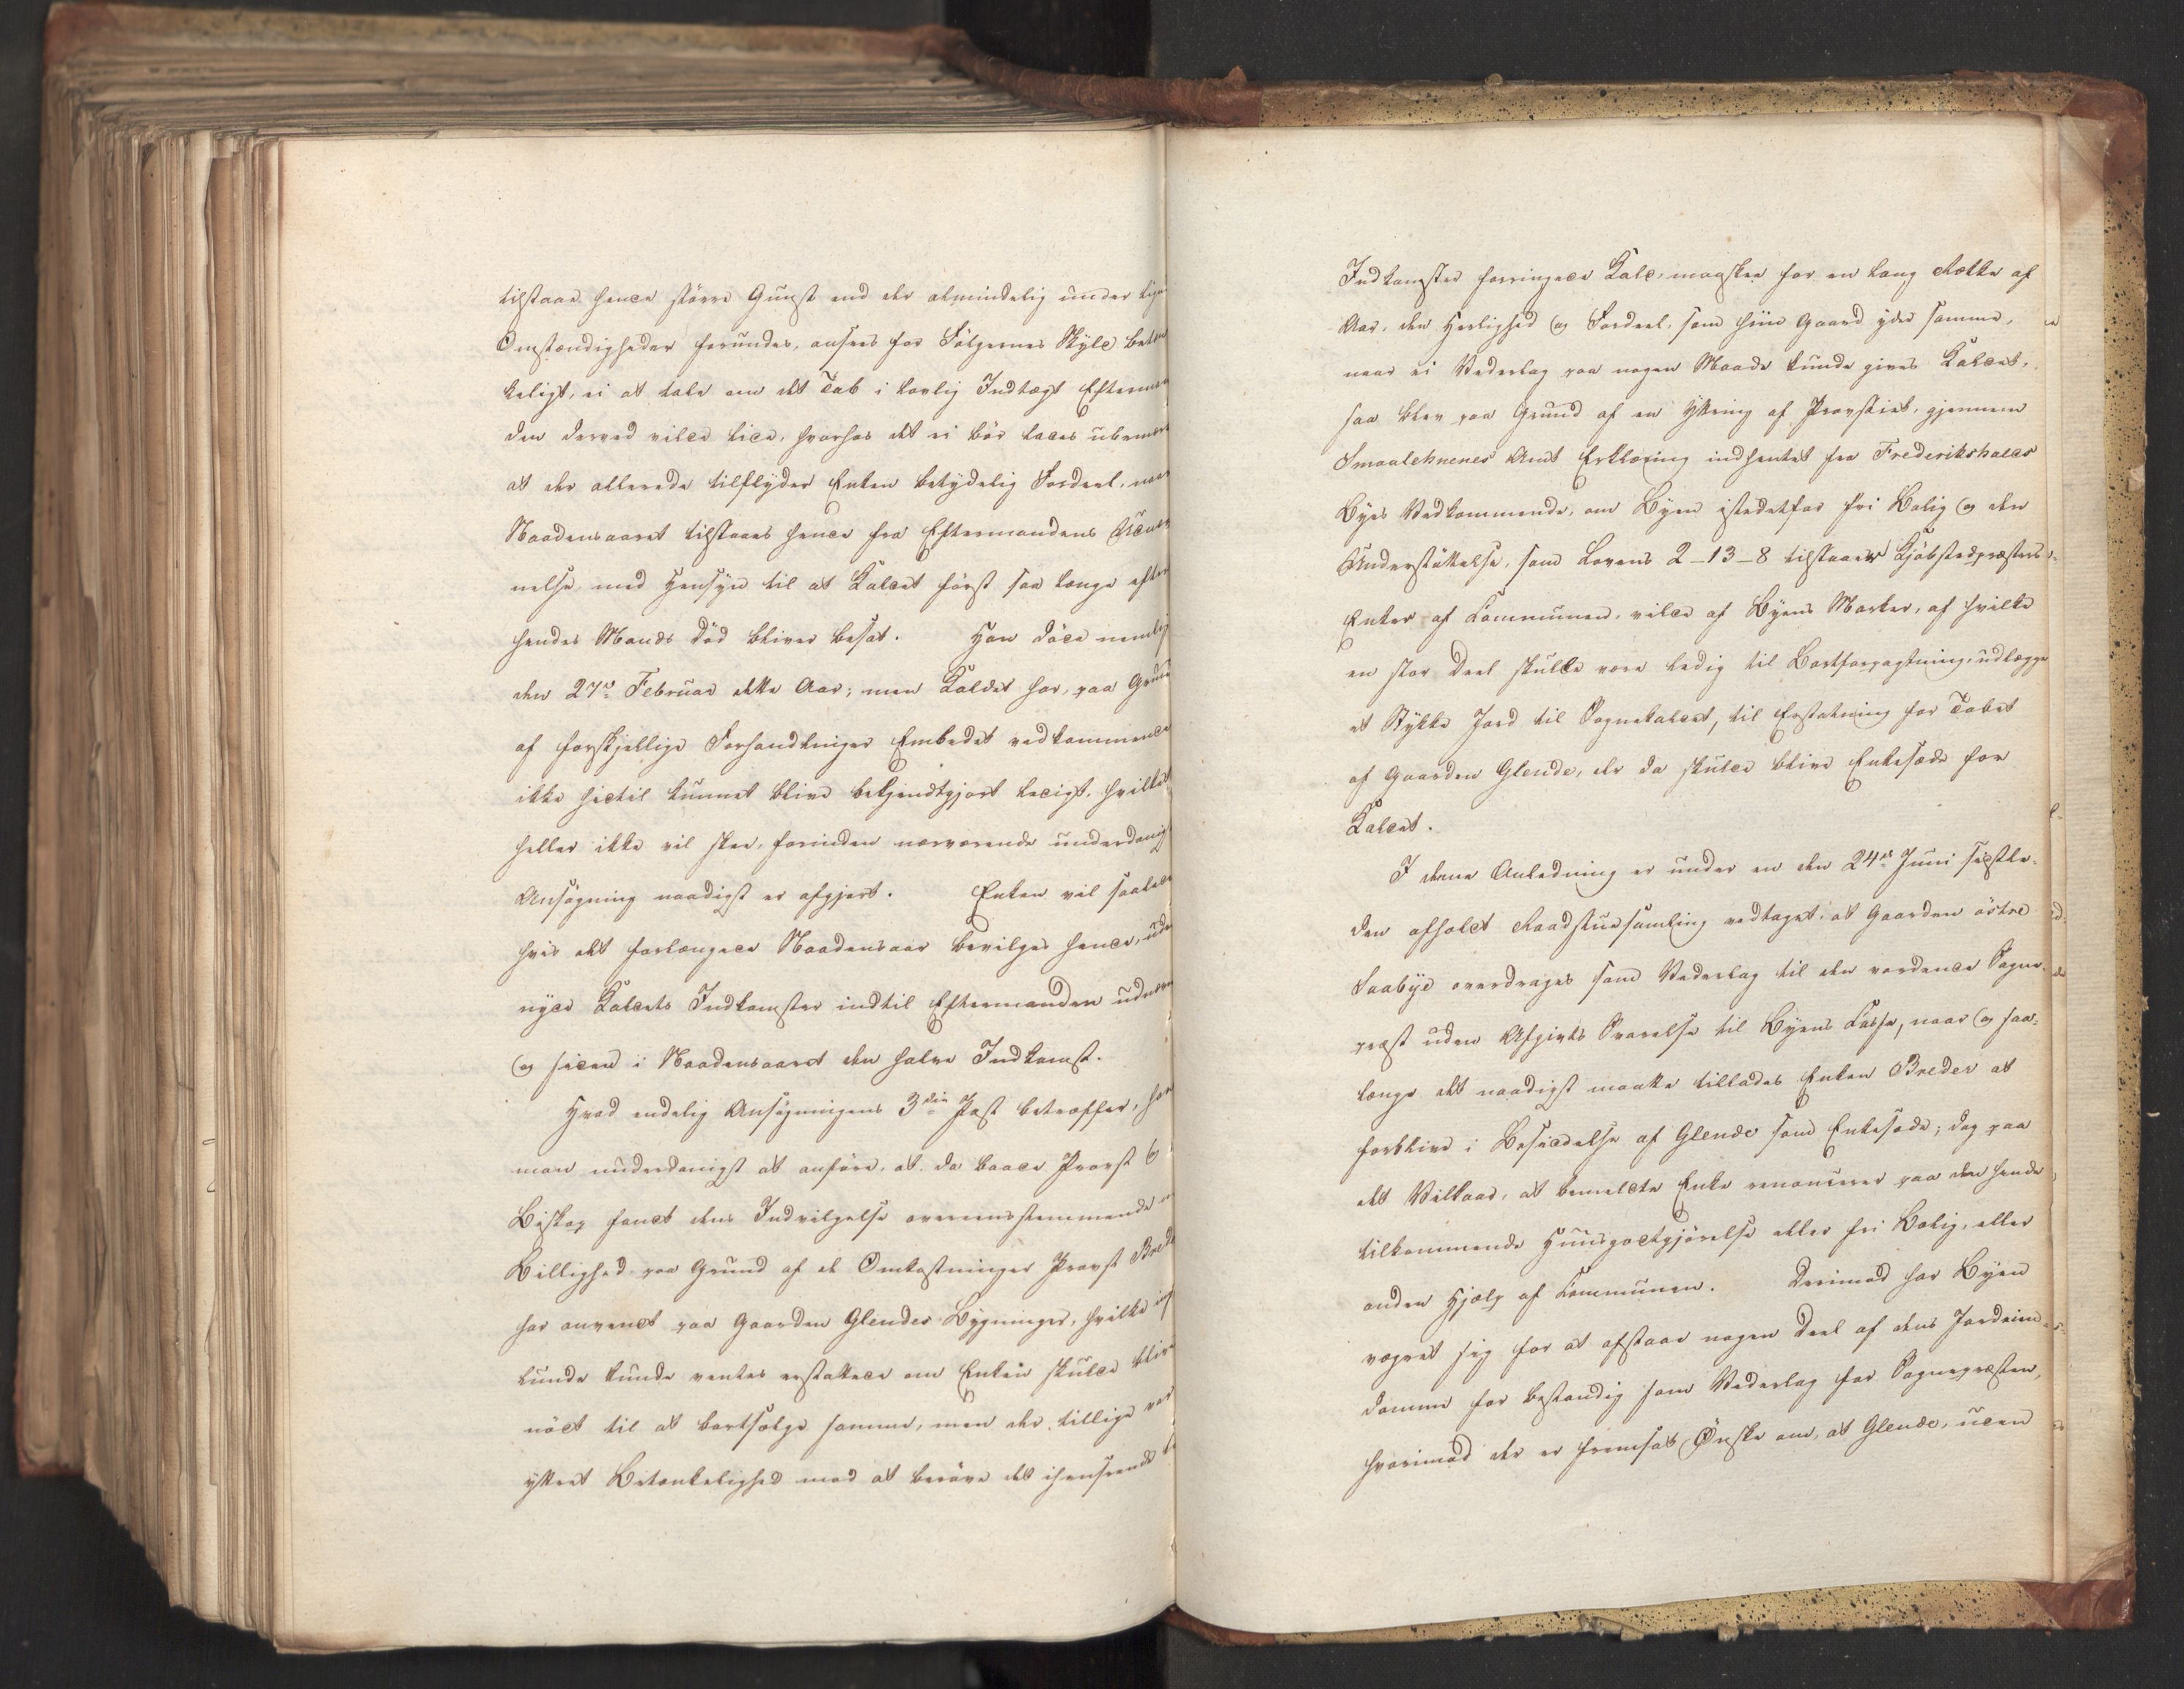 tilstaae hende større Gunst end der almindelig under lige
Omstændigheder forundes, ansees for Følgernes Skyld betæn
keligt, ei at tale om det Tab i lovlig Indtægt Efterman
den derved vilde lide, hvorhos det ei bør lades ubemærk
at der allerede tilflyder Enken betydelig Fordeel, naar
Naadensaaret tilstaaes hende fra Eftermandens Udnæv
nelse, med Hensyn til at Kaldet først saa længe efter
hendes Mands Død bliver besat. Han døde nemlig
den 27de Februar dette Aar; men Kaldet har, paa Grund
af forskjellige Forhandlinger Embedet vedkommende
ikke hidtil kunnet blive bekjendtgjort ledigt, hvilket
heller ikke vil skee, forinden nærværende underdanig
Ansøgning naadigst er afgjort. Enken vil saaledes
hvis det forlængede Naadensaar bevilges hende,
nyde Kaldets Indkomster indtil Eftermanden udnævn
og siden i Naadensaaret den halve Indkomst.
Hvad endelig Ansøgningens 3die Post betræffer, har
man underdanigst at anføre, at da baade Provst og
Biskop fandt dens Indvilgelse overeensstemmende m
Billighed paa Grund af de Omkostninger Provst Brede
har anvendt paa Gaarden Glendes Bygninger, hvilke
kunde ventes erstattede om Enken skulde blive
nødt til at bortsælge samme, men der tillige var
yttret Betænkelighed mod at berøve det ihenseende
Indkomster forringede Kald, maaskee for en lang Række af
Aar, den Herlighed og Fordeel, som hiin Gaard yder samme,
naar ei Vederlag paa nogen Maade kunde gives Kaldet,
saa blev paa Grund af en Yttring af Provstiet, gjennem
Smaalehnenes Amt Erklæring indhentet fra Frederikshalds
Byes Vedkommende, om Byen istedetfor fri Bolig og den
Understøttelse, som Lovens 2-13-8 tilstaaer Kjøbstedpræsters
Enker af Communen, vilde af Byens Marker, af hvilke
en stor Deel skulle være ledig til Bortforpagtning, udlægge
et Stykke Jord til Sognekaldet, til Erstatning for Tabet
af Gaarden Glende, der da skulde blive Enkesæde for
Kaldet.
I denne Anledning er under en den 24de Juni sidstle-
den afholdt Raadstuesamling vedtaget, at Gaarden østre
Saabye overdrages som Vederlag til den vordende Sogne-
præst uden Afgivts Svarelse til Byens Casse, naar og saa-
længe det naadigst maatte tillades Enken Breder at
forblive i Besiddelse af Glende som Enkesæde; dog paa
det Vilkaar, at bemeldte Enke renoncerer paa den hende
tilkommende Huusgodtgjørelse eller fri Bolig, eller
anden Hjælp af Communen. Derimod har Byen
vægret sig for at afstaae nogen Deel af dens Jordeien-
domme for bestandig som Vederlag for Sognepræsten,
hvorimod der er fremsat Ønske om, at Glende, uden